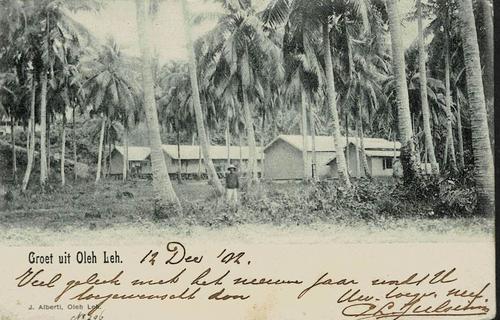 Groet uit Oleh Leh. 12 Dec '02.
Veel geluk met het nieuwe jaar wordt U
toegewenscht door Uw toegen. neef
J. Alberti, Oleh Leh.